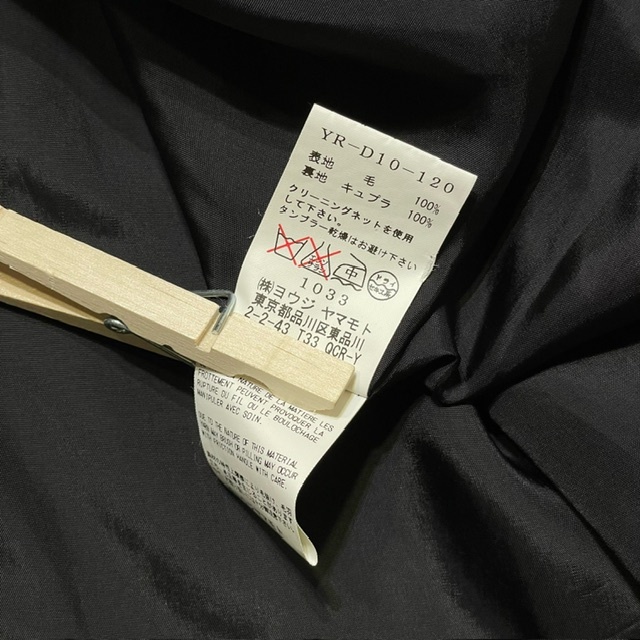 YR-D10-120
表地 毛 100%
裏地 キュプラ 100%
クリーニングネットを使用
して下さい。
タンブラー乾燥はお避け下さい
エンソ
サラシ
中
ドライ
1033
(株)ヨウジ ヤマモト
東京都品川区東品川
2-2-43 T33 QCR-Y
NATURE DE LA MATIERE LES
FROTTEMENT PEUVENT PROVOQUER LA
RUPTURE DU FIL OU LE BOULOCHAGE
MANIPULER AVEC SOIN.
DUE TO THE NATURE OF THIS MATERIAL
YARNS MAY BREAK OR PILLING MAY OCCUR
WITH FRICTION HANDLE WITH CARE.